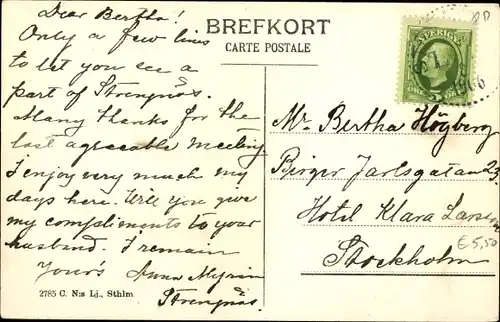 Dear Bertha!
Only a few lines
to let you see a
part of Strengnäs.
Many thanks for the
last agreeable meeting.
I enjoy very much my
days here. Will you give
my compliments to your
husband. I remain
Yours Anna
Strengnäs.
2785 C. N:s Lj., Sthlm
BREFKORT
CARTE POSTALE
SVERIGE
8D
Mr Bertha Högberg
Birger Jarlsgatan 23
Hotel Klara Larsson
Stockholm
€5,50